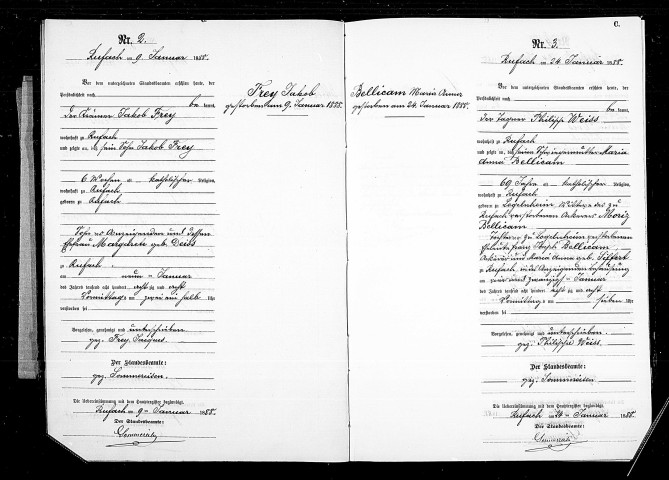 Nr. 2.
Rufach am 9. Januar 1888.
Vor dem unterzeichneten Standesbeamten erschien heute, der
Persönlichkeit nach
be kannt,
der Krämer Jakob Frey
wohnhaft zu Rufach
und zeigte an, daß sein Sohn Jakob Frey
6 Wochen alt, katholischer Religion,
wohnhaft zu Rufach
geboren zu Rufach
Sohn des Anzeigenden und dessen
Ehefrau Margareth geb. Deiss
zu Rufach
am neun ten Januar
des Jahres tausend acht hundert achtzig und acht
Vormittags um halb Uhr
verstorben sei
Vorgelesen, genehmigt und unterschrieben
gez. Frey Jacques.
Der Standesbeamte:
gez. Sommereisen.
Die Uebereinstimmung mit dem Hauptregister beglaubigt.
Rufach am 9ten Januar 1888.
Der Standesbeamte:
Frey Jakob
gestorben am 9. Januar 1888.
Bellicam Maria Anna
gestorben am 24. Januar 1888.
6.
Nr. 3.
Rufach am 24. Januar 1888.
Vor dem unterzeichneten Standesbeamten erschien heute, der
Persönlichkeit nach
be kannt,
der Tagner Philipp Weiss
wohnhaft zu Rufach
und zeigte an, daß seine Schwiegermutter Maria
Anna Bellicam
69 Jahre alt, katholischer Religion,
wohnhaft zu Rufach
geboren zu Logelnheim, Wittwe des zu
Rufach verstorbenen Ackerers Moriz
Bellicam
Tochter der zu Logelnheim verstorbenen
Eheleute Franz Joseph Bellicam,
Ackerer und Maria Anna geb. Siffert
zu Rufach in des Anzeigenden Behausung
am vier und zwanzigsten Januar
des Jahres tausend acht hundert achtzig und acht
Vormittags um sieben Uhr
verstorben sei
Vorgelesen, genehmigt und unterschrieben.
gez. Philippe Weiss.
Der Standesbeamte:
gez. Sommereisen
Die Uebereinstimmung mit dem Hauptregister beglaubigt.
Rufach am 24ten Januar 1888.
Der Standesbeamte: